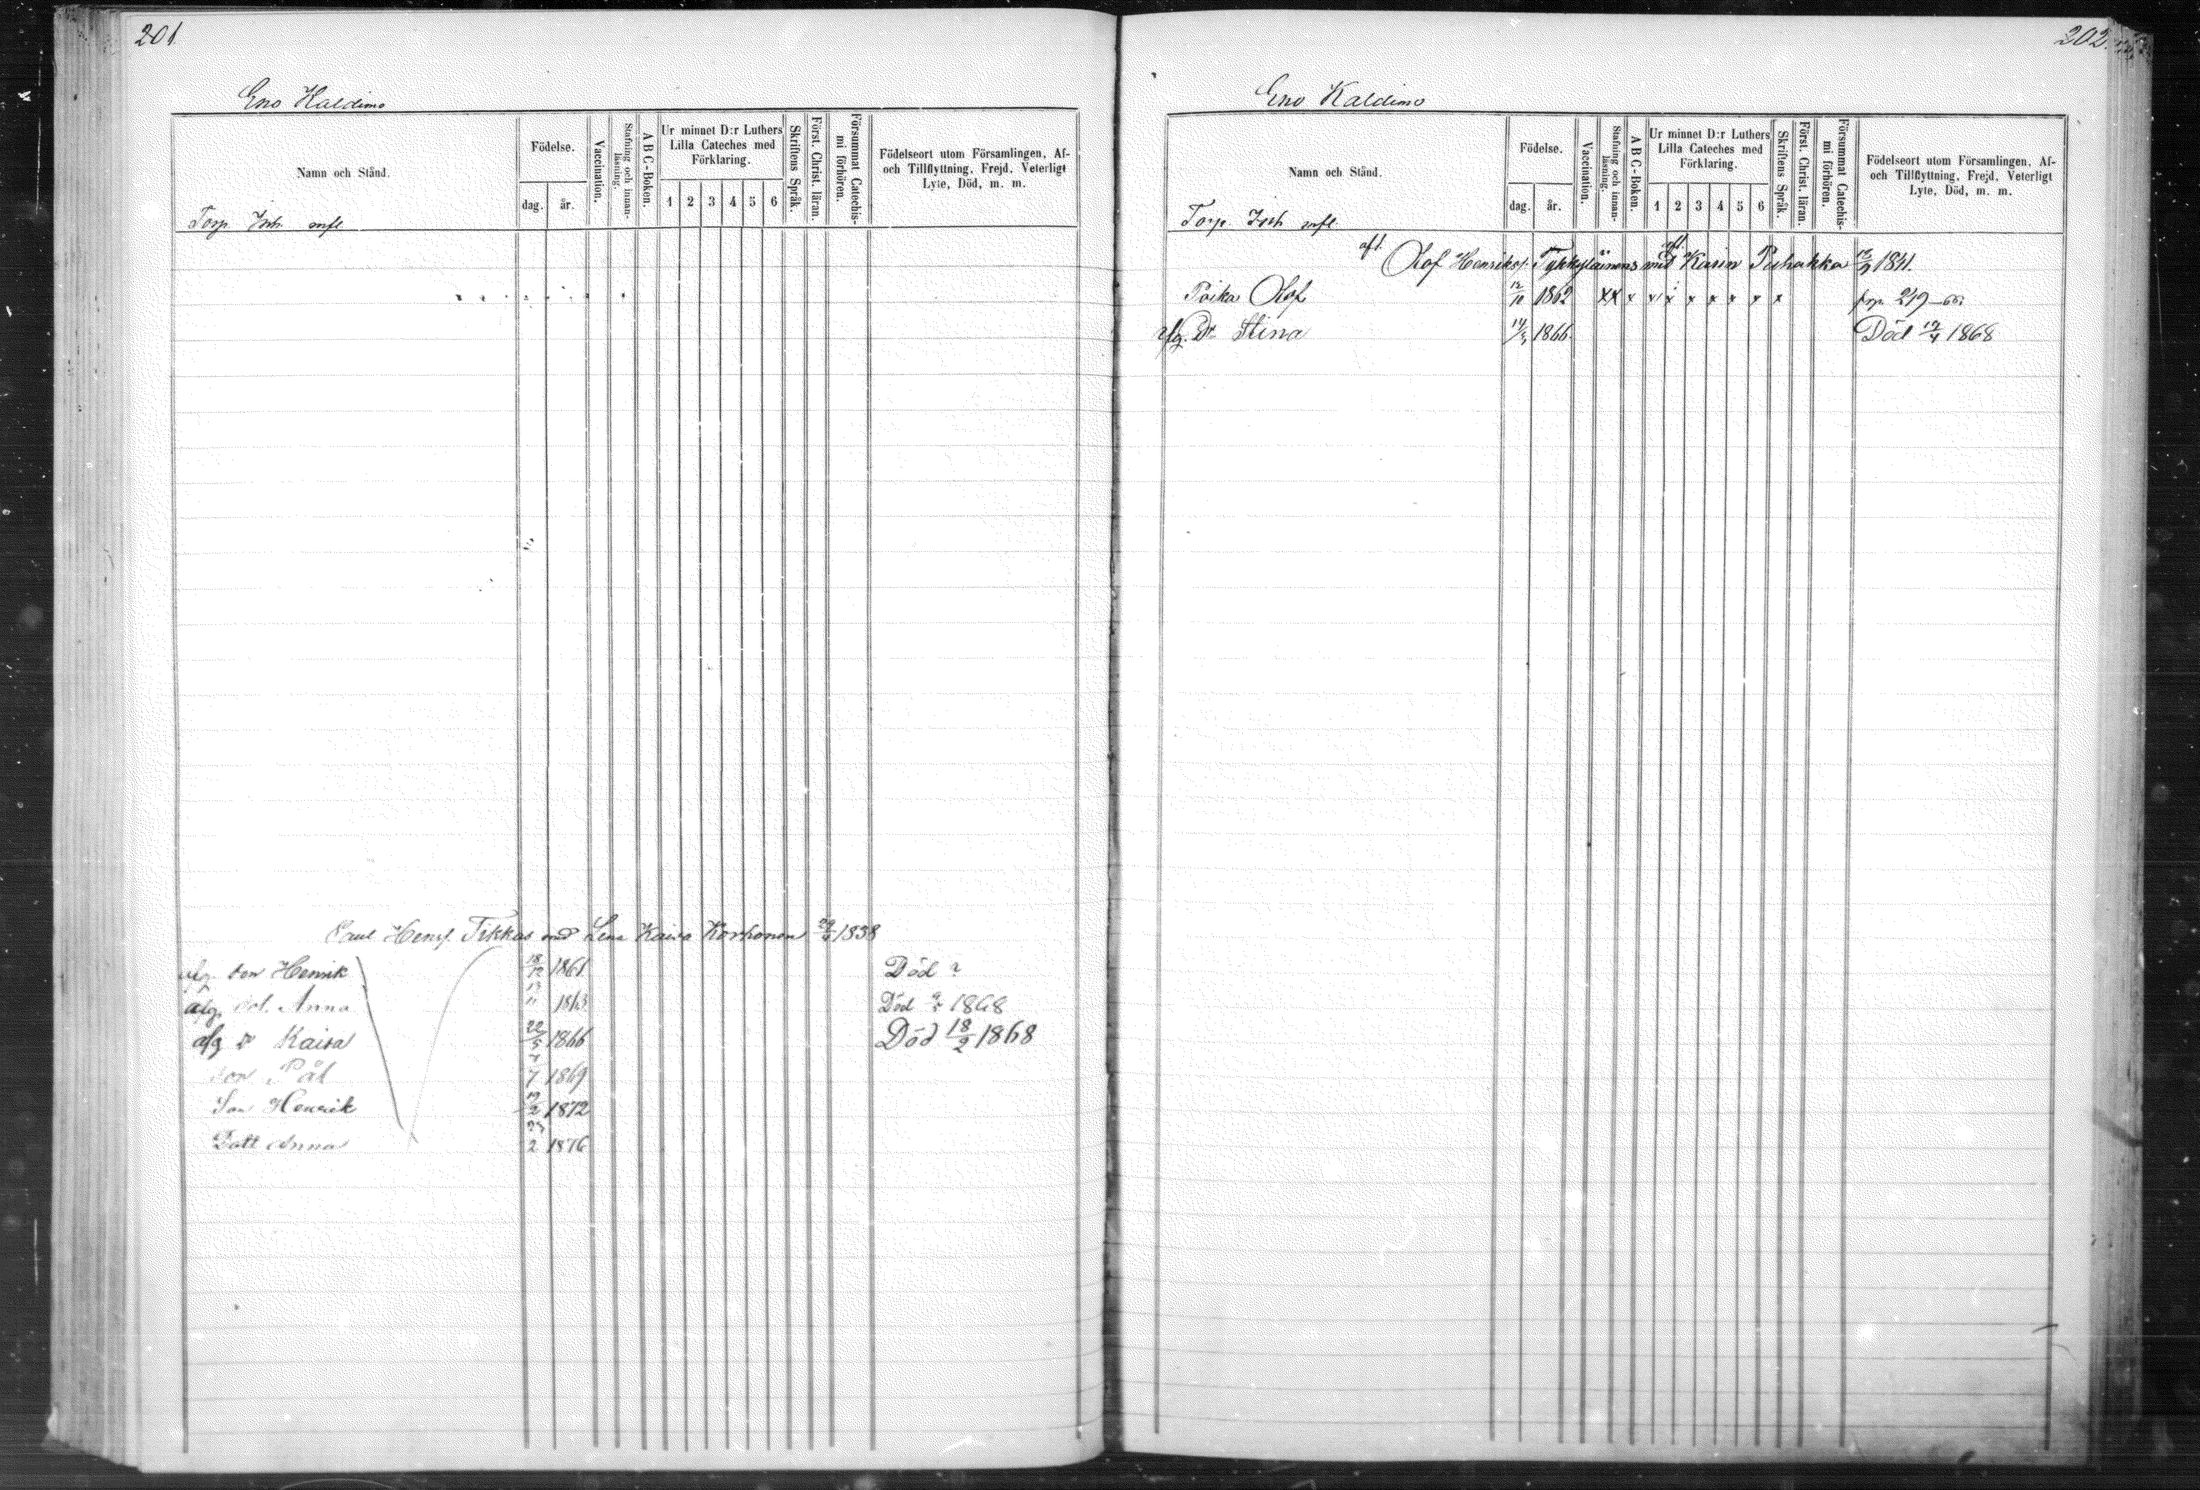 201
Eno Kaldimo
Namn och Stånd.
Födelse.
dag. år.
Vaccination.
Stafning och innan-
läsning.
A B C-Boken.
Ur minnet D:r Luthers
Lilla Cateches med
Förklaring.
1 2 3 4 5 6
Skriftens Språk.
Först. Christ. läran.
Försummat Catechis-
mi förhören.
Födelseort utom Församlingen, Af-
och Tillflyttning, Frejd, Veterligt
Lyte, Död, m. m.
Torp. Inh. mfl.
Paul Henrs. Tikkas med Lena Kaisa Korhonen 1838
afg. son Henrik 18/12 1861 Död ?
afg. dot. Anna 1863 Död 1868
afg Do Kaisa 22/5 1866 Död 18/2 1868
son Pål 7 1869
Son Henrik 19/2 1872
Dott Anna 23/2 1876
202
Eno Kaldimo
Namn och Stånd.
Födelse.
dag. år.
Vaccination.
Stafning och innan-
läsning.
A B C-Boken.
Ur minnet D:r Luthers
Lilla Cateches med
Förklaring.
1 2 3 4 5 6
Skriftens Språk.
Först. Christ. läran.
Försummat Catechis-
mi förhören.
Födelseort utom Församlingen, Af-
och Tillflyttning, Frejd, Veterligt
Lyte, Död, m. m.
Torp. Inh. mfl.
afl. Olof Henriks. Tykkyläinens med afl. Karin Puhakka 1841.
Poika Olof 12/10 1862 x x x x x x x x x x 219
afg. Dr Stina 1866. Död 19/4 1868